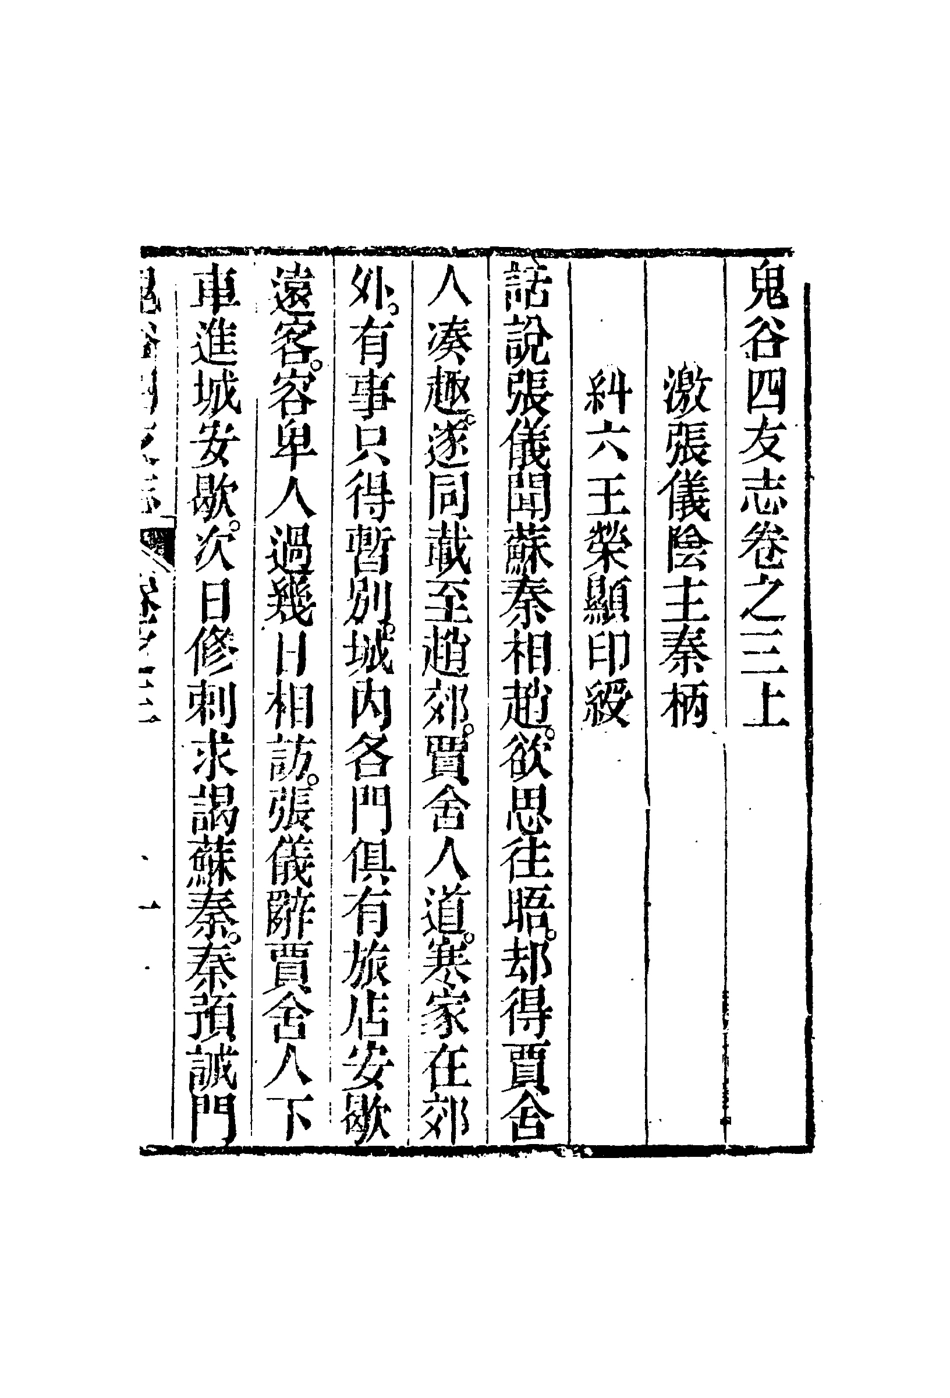 鬼谷四友志卷之三上
激張儀陰主秦柄
糾六王榮顯印綬
話說張儀聞蘇秦相趙。欲思往晤。却得賈舍
人凑趣。遂同載至趙郊。賈舍人道。寒家在郊
外。有事只得暫別。城内各門俱有旅店安歇
遠客。容卑人過幾日相訪。張儀辭賈舍人下
車進城安歇。次日修刺求謁蘇秦。秦預誡門
鬼谷四友志 卷之三 一